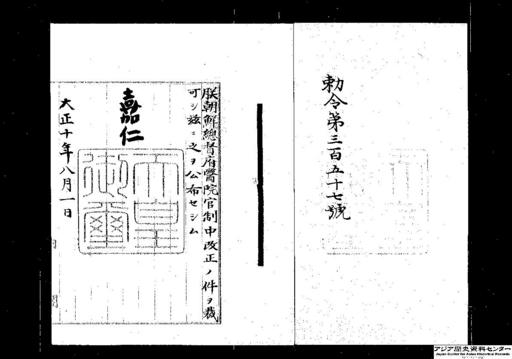 勅令第三百五十七號
朕朝鮮總督府醫院官制中改正ノ件ヲ裁
可シ玆ニ之ヲ公布セシム
嘉仁
天皇御璽
大正十年八月一日
アジア歴史資料センター
Japan Center for Asian Historical Records